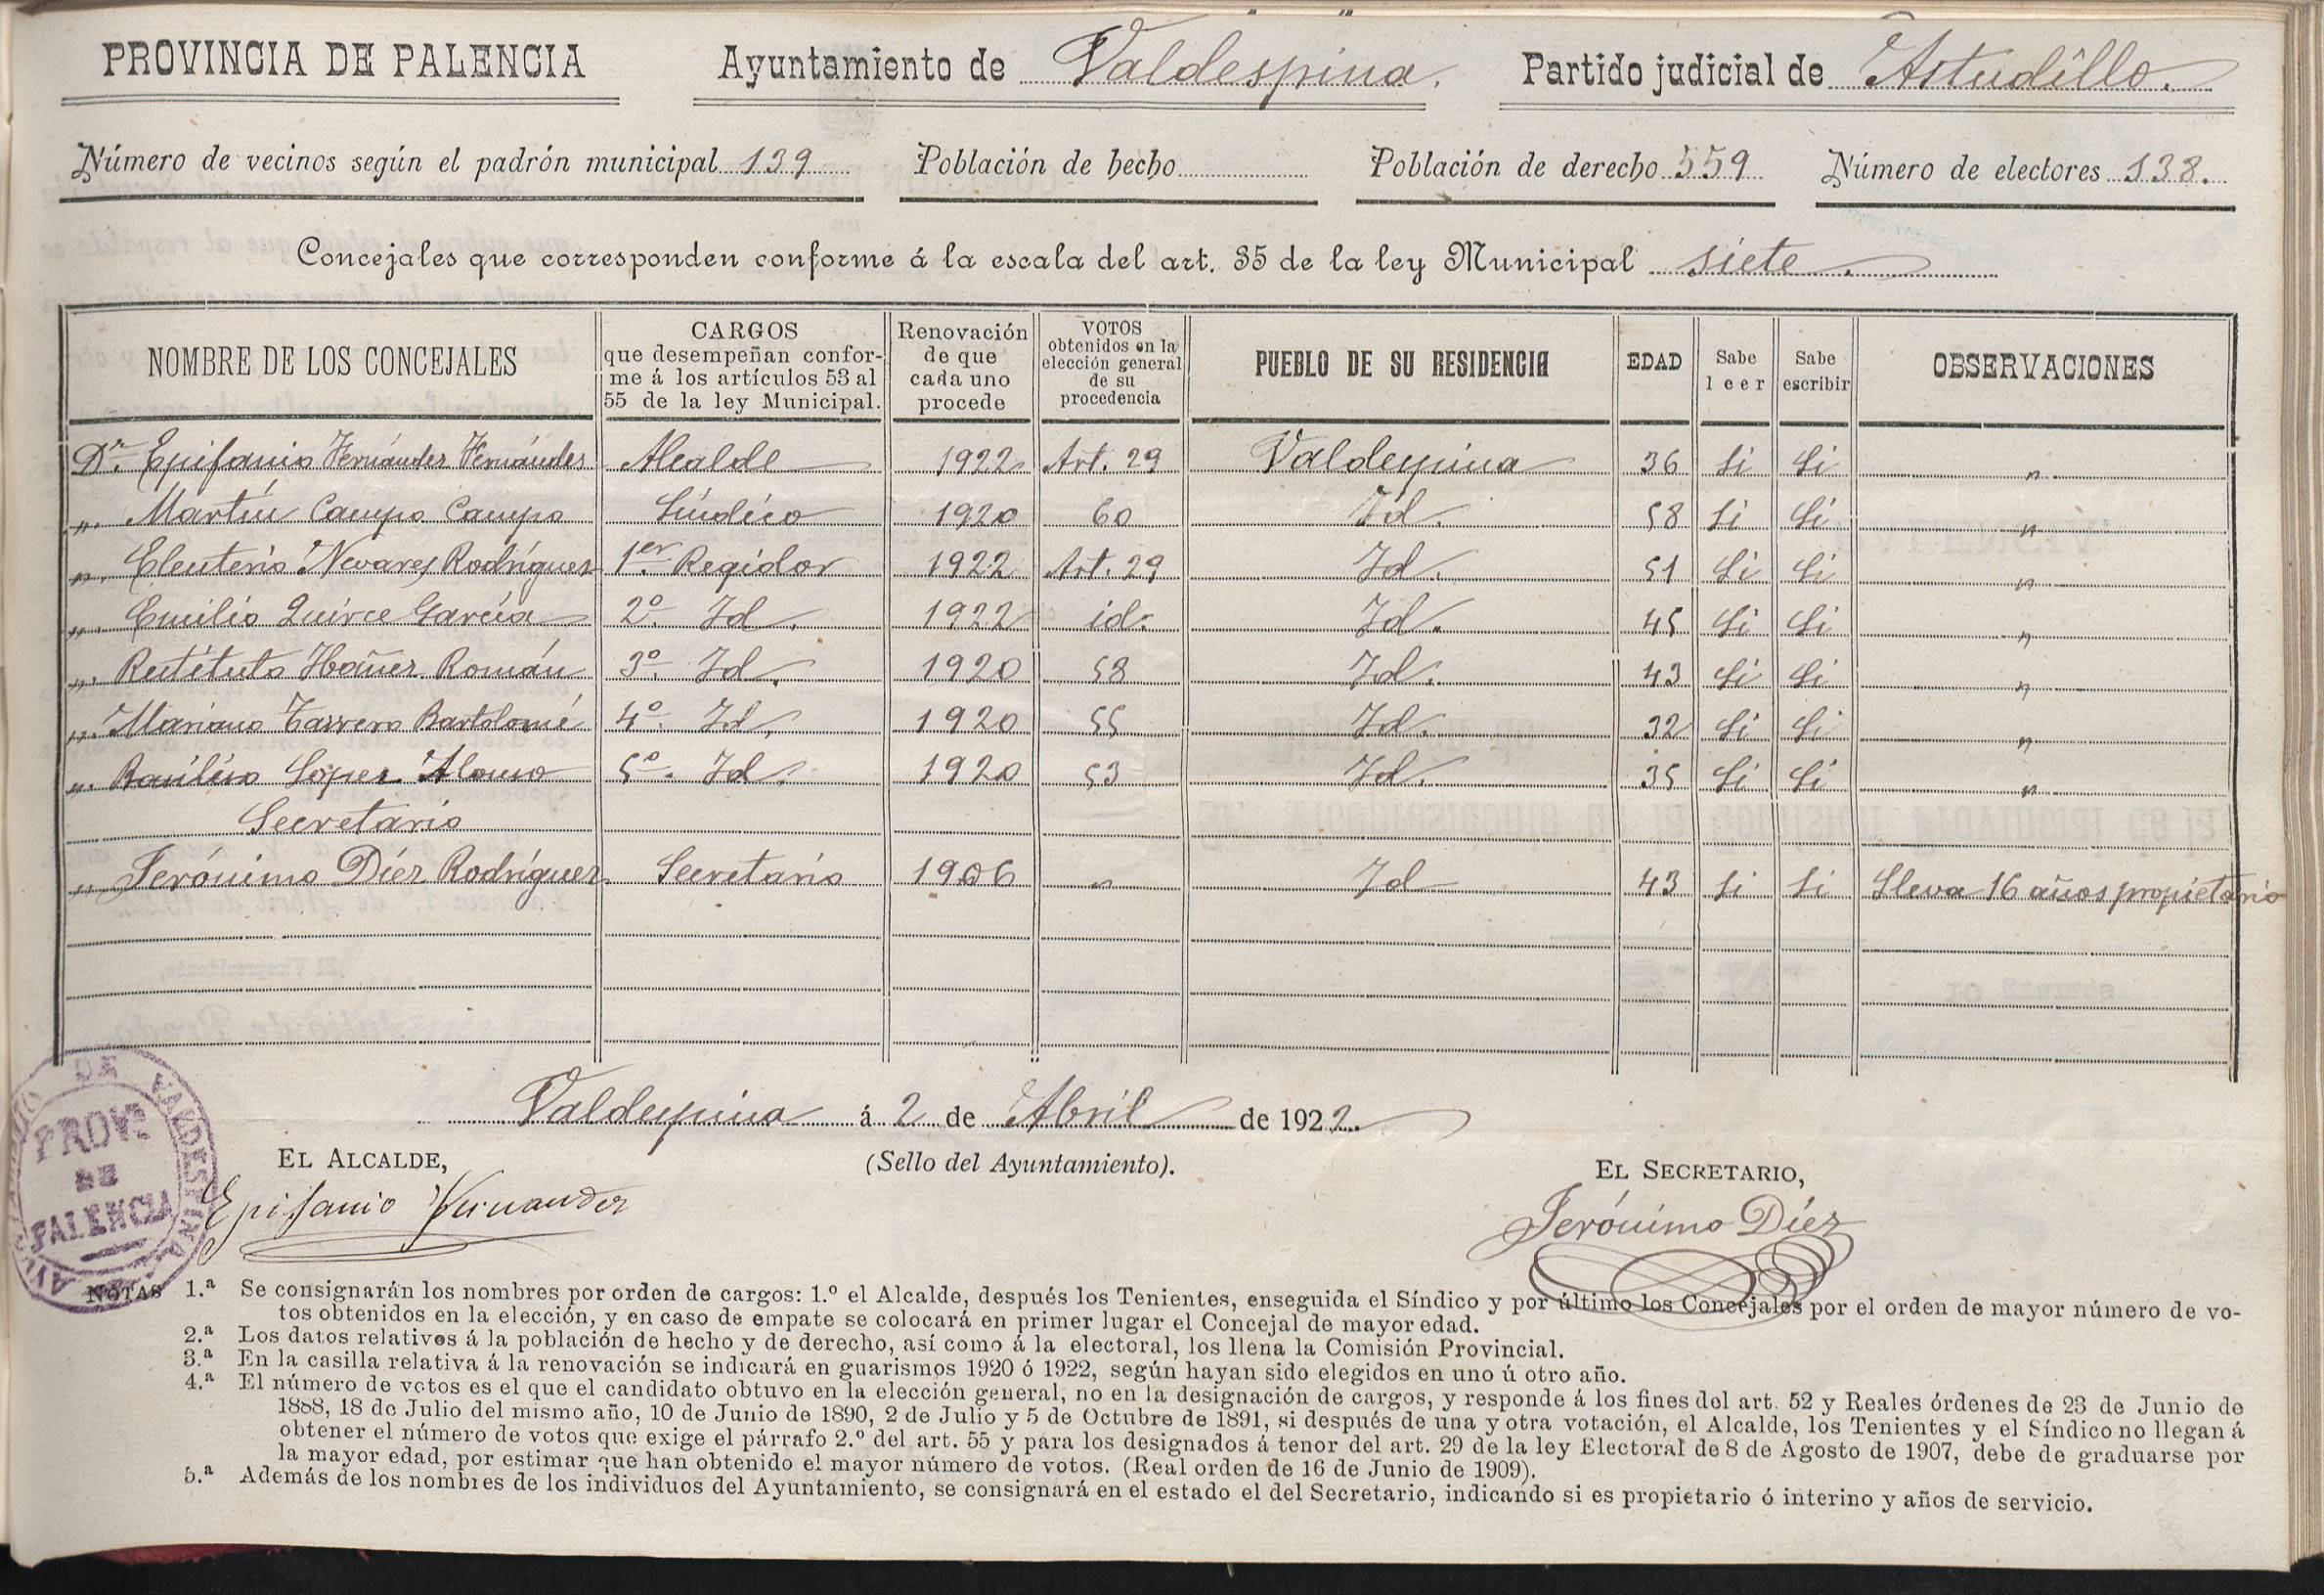 PROVINCIA DE PALENCIA Ayuntamiento de Valdespina. Partido judicial de Astudillo.
Número de vecinos según el padrón municipal 139 Población de hecho Población de derecho 559 Número de electores 138.
Concejales que corresponden conforme á la escala del art. 35 de la ley Municipal siete.
NOMBRE DE LOS CONCEJALES
CARGOS
que desempeñan confor-
me á los artículos 53 al
55 de la ley Municipal.
Renovación
de que
cada uno
procede
VOTOS
obtenidos en la
elección general
de su
procedencia
PUEBLO DE SU RESIDENCIA
EDAD
Sabe
leer
Sabe
escribir
OBSERVACIONES
Dn. Epifanio Fernández Fernández Alcalde 1922 Art. 29 Valdespina 36 Si Si "
". Martín Campo Campo Síndico 1920 60 Id. 58 Si Si "
". Eleuterio Nevares Rodríguez 1er Regidor 1922 Art. 29 Id. 51 Si Si "
". Emilio Quirce García 2º Id. 1922 id. Id. 45 Si Si "
". Restituto Ibañez Román 3º Id. 1920 58 Id. 43 Si Si "
". Mariano Tarrero Bartolomé 4º Id. 1920 55 Id. 32 Si Si "
". Basilisa López Alonso 5º Id. 1920 53 Id. 35 Si Si "
Secretario
" Jerónimo Díez Rodríguez Secretario 1906 " Id 43 Si Si Lleva 16 años propietario
Valdespina á 2 de Abril de 1922.
EL ALCALDE,
(Sello del Ayuntamiento).
EL SECRETARIO,
Epifanio Fernandez
Jerónimo Díez
AYUNTAMIENTO DE VALDESPINA
PROVª
DE
PALENCIA
NOTAS 1.ª Se consignarán los nombres por orden de cargos: 1.º el Alcalde, después los Tenientes, enseguida el Síndico y por último los Concejales por el orden de mayor número de vo-
tos obtenidos en la elección, y en caso de empate se colocará en primer lugar el Concejal de mayor edad.
2.ª Los datos relativos á la población de hecho y de derecho, así como á la electoral, los llena la Comisión Provincial.
3.ª En la casilla relativa á la renovación se indicará en guarismos 1920 ó 1922, según hayan sido elegidos en uno ú otro año.
4.ª El número de votos es el que el candidato obtuvo en la elección general, no en la designación de cargos, y responde á los fines del art. 52 y Reales órdenes de 23 de Junio de
1888, 18 de Julio del mismo año, 10 de Junio de 1890, 2 de Julio y 5 de Octubre de 1891, si después de una y otra votación, el Alcalde, los Tenientes y el Síndico no llegan á
obtener el número de votos que exige el párrafo 2.º del art. 55 y para los designados á tenor del art. 29 de la ley Electoral de 8 de Agosto de 1907, debe de graduarse por
la mayor edad, por estimar que han obtenido el mayor número de votos. (Real orden de 16 de Junio de 1909).
5.ª Además de los nombres de los individuos del Ayuntamiento, se consignará en el estado el del Secretario, indicando si es propietario ó interino y años de servicio.